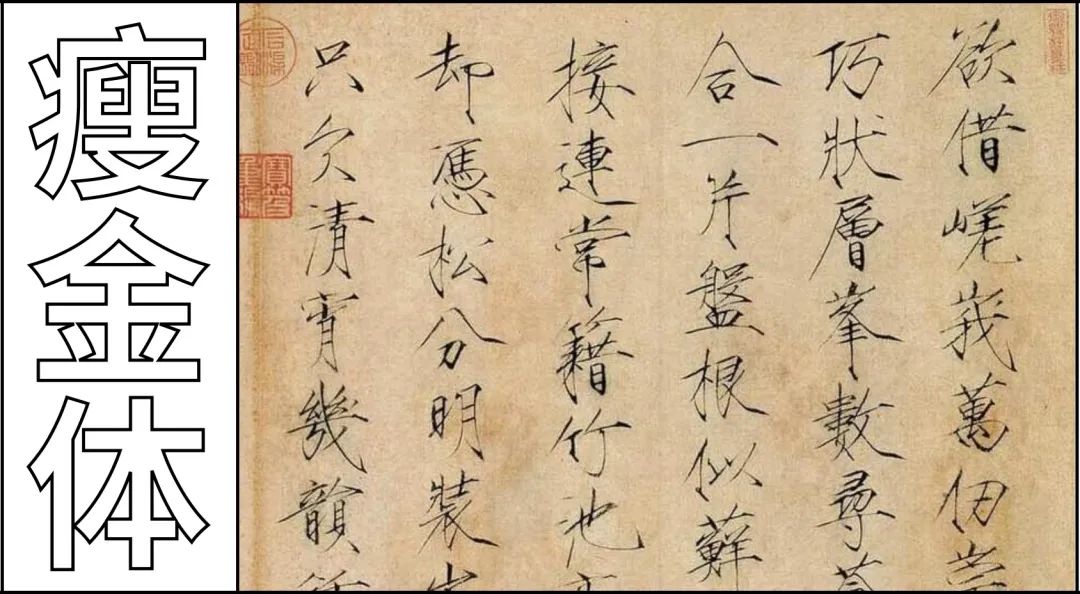 瘦金体
欲借嵯峩萬仞
巧狀層峯數尋
合一片盤根似蘚
接連常籍竹池
却憑松分明裝
只欠清宵幾韻